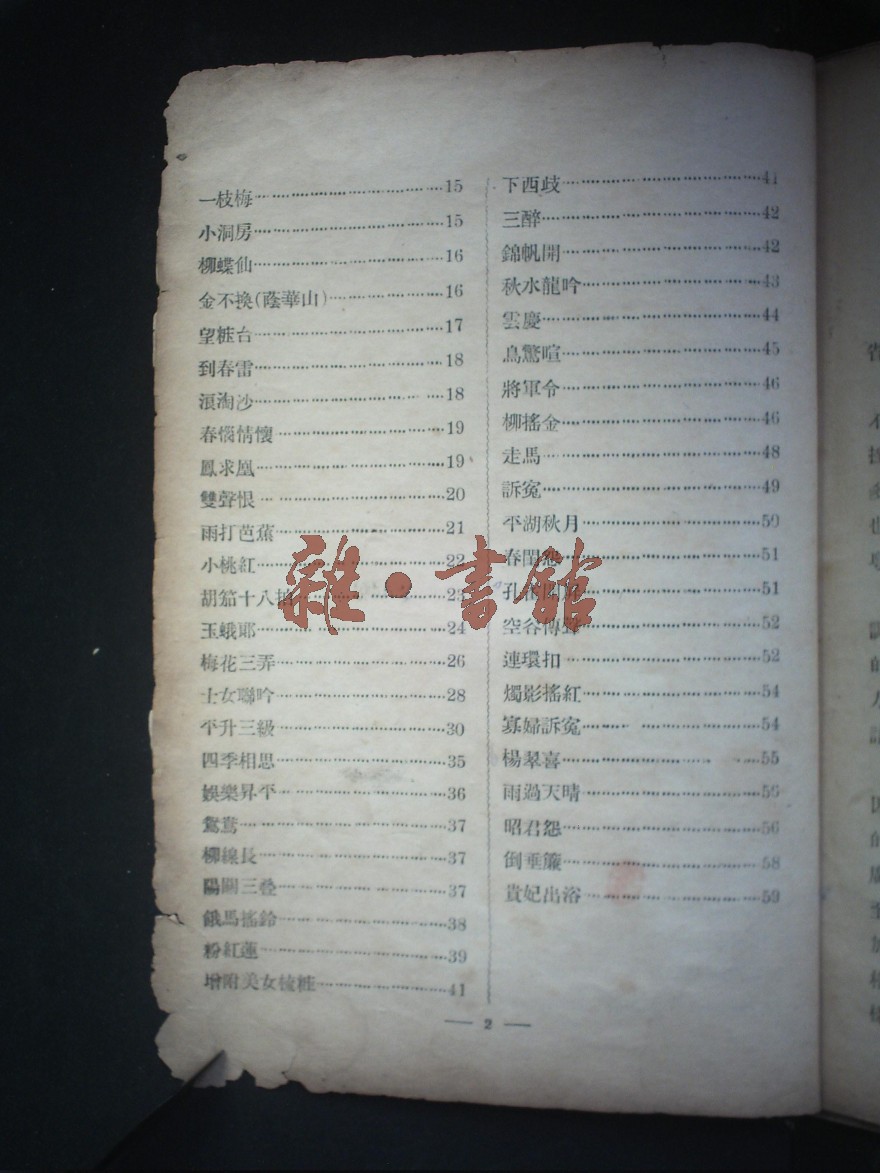 一枝梅⋯⋯15
小洞房⋯⋯15
柳蝶仙⋯⋯16
金不換(蔭華山)⋯⋯16
望粧台⋯⋯17
到春雷⋯⋯18
浪淘沙⋯⋯18
春惱情懷⋯⋯19
鳳求凰⋯⋯19
雙聲恨⋯⋯20
雨打芭蕉⋯⋯21
小桃紅⋯⋯22
胡笳十八拍⋯⋯23
玉蛾郞⋯⋯24
梅花三弄⋯⋯26
士女聯吟⋯⋯28
平升三級⋯⋯30
四季相思⋯⋯35
娛樂昇平⋯⋯36
鴛鴦⋯⋯37
柳線長⋯⋯37
陽關三叠⋯⋯37
餓馬搖鈴⋯⋯38
粉紅蓮⋯⋯39
增附美女梳粧⋯⋯41
下西歧⋯⋯41
三醉⋯⋯42
錦帆開⋯⋯42
秋水龍吟⋯⋯43
雲慶⋯⋯44
鳥驚喧⋯⋯45
將軍令⋯⋯46
柳搖金⋯⋯46
走馬⋯⋯48
訴寃⋯⋯49
平湖秋月⋯⋯50
春閨怨⋯⋯51
孔雀開屏⋯⋯51
空谷傳聲⋯⋯52
連環扣⋯⋯52
燭影搖紅⋯⋯54
寡婦訴寃⋯⋯54
楊翠喜⋯⋯55
雨過天晴⋯⋯56
昭君怨⋯⋯56
倒垂簾⋯⋯58
貴妃出浴⋯⋯59
— 2 —
雜·書館